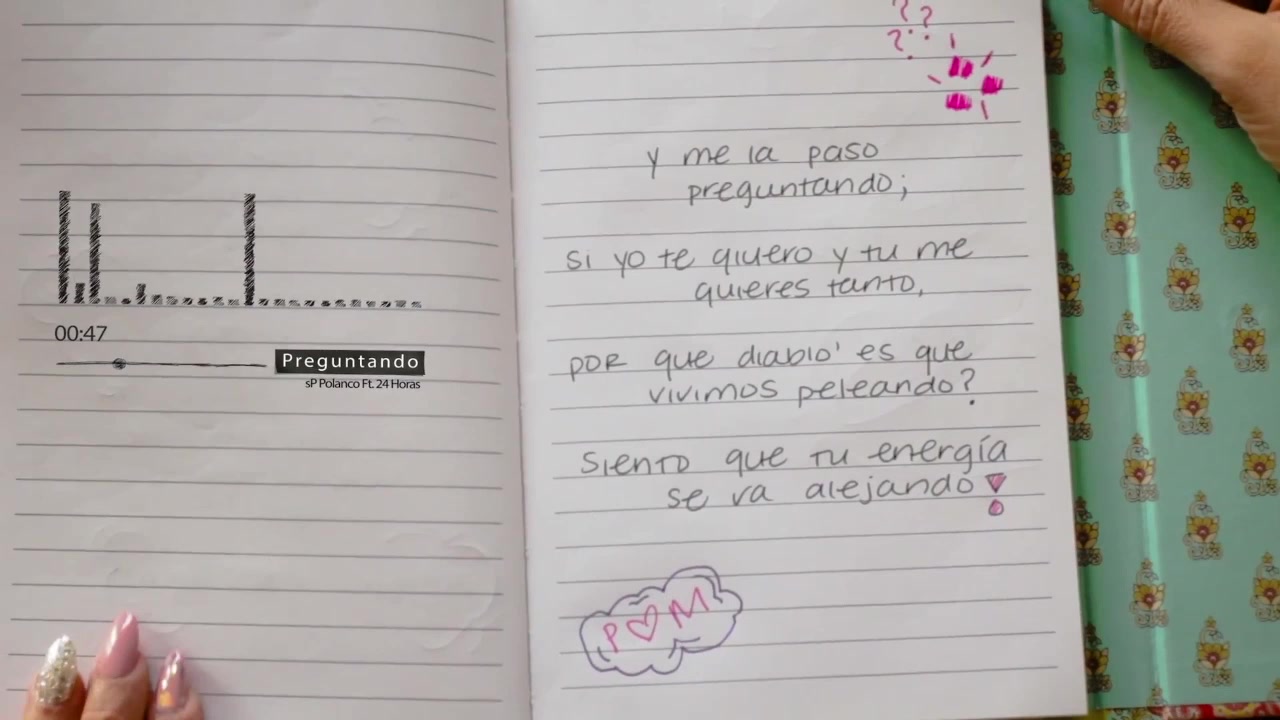 00:47
Preguntando
sP Polanco Ft. 24 Horas
? ? ?
y me la paso
preguntando;
si yo te quiero y tu me
quieres tanto,
por que diablo' es que
vivimos peleando?
siento que tu energía
se va alejando!
P♡M